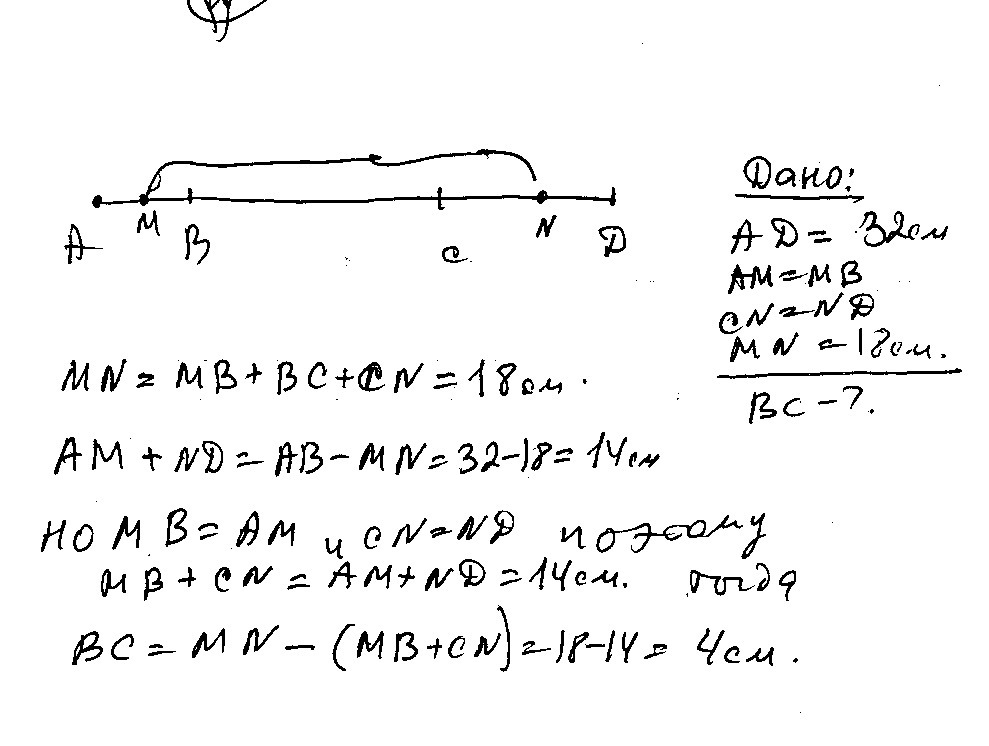 A M B C N D
Дано:
AD = 32см
AM = MB
CN = ND
MN = 18см.
BC - ?.
MN = MB + BC + CN = 18см.
AM + ND = AB - MN = 32 - 18 = 14см
но MB = AM и CN = ND поэтому
MB + CN = AM + ND = 14см. тогда
BC = MN - (MB + CN) = 18 - 14 = 4см.